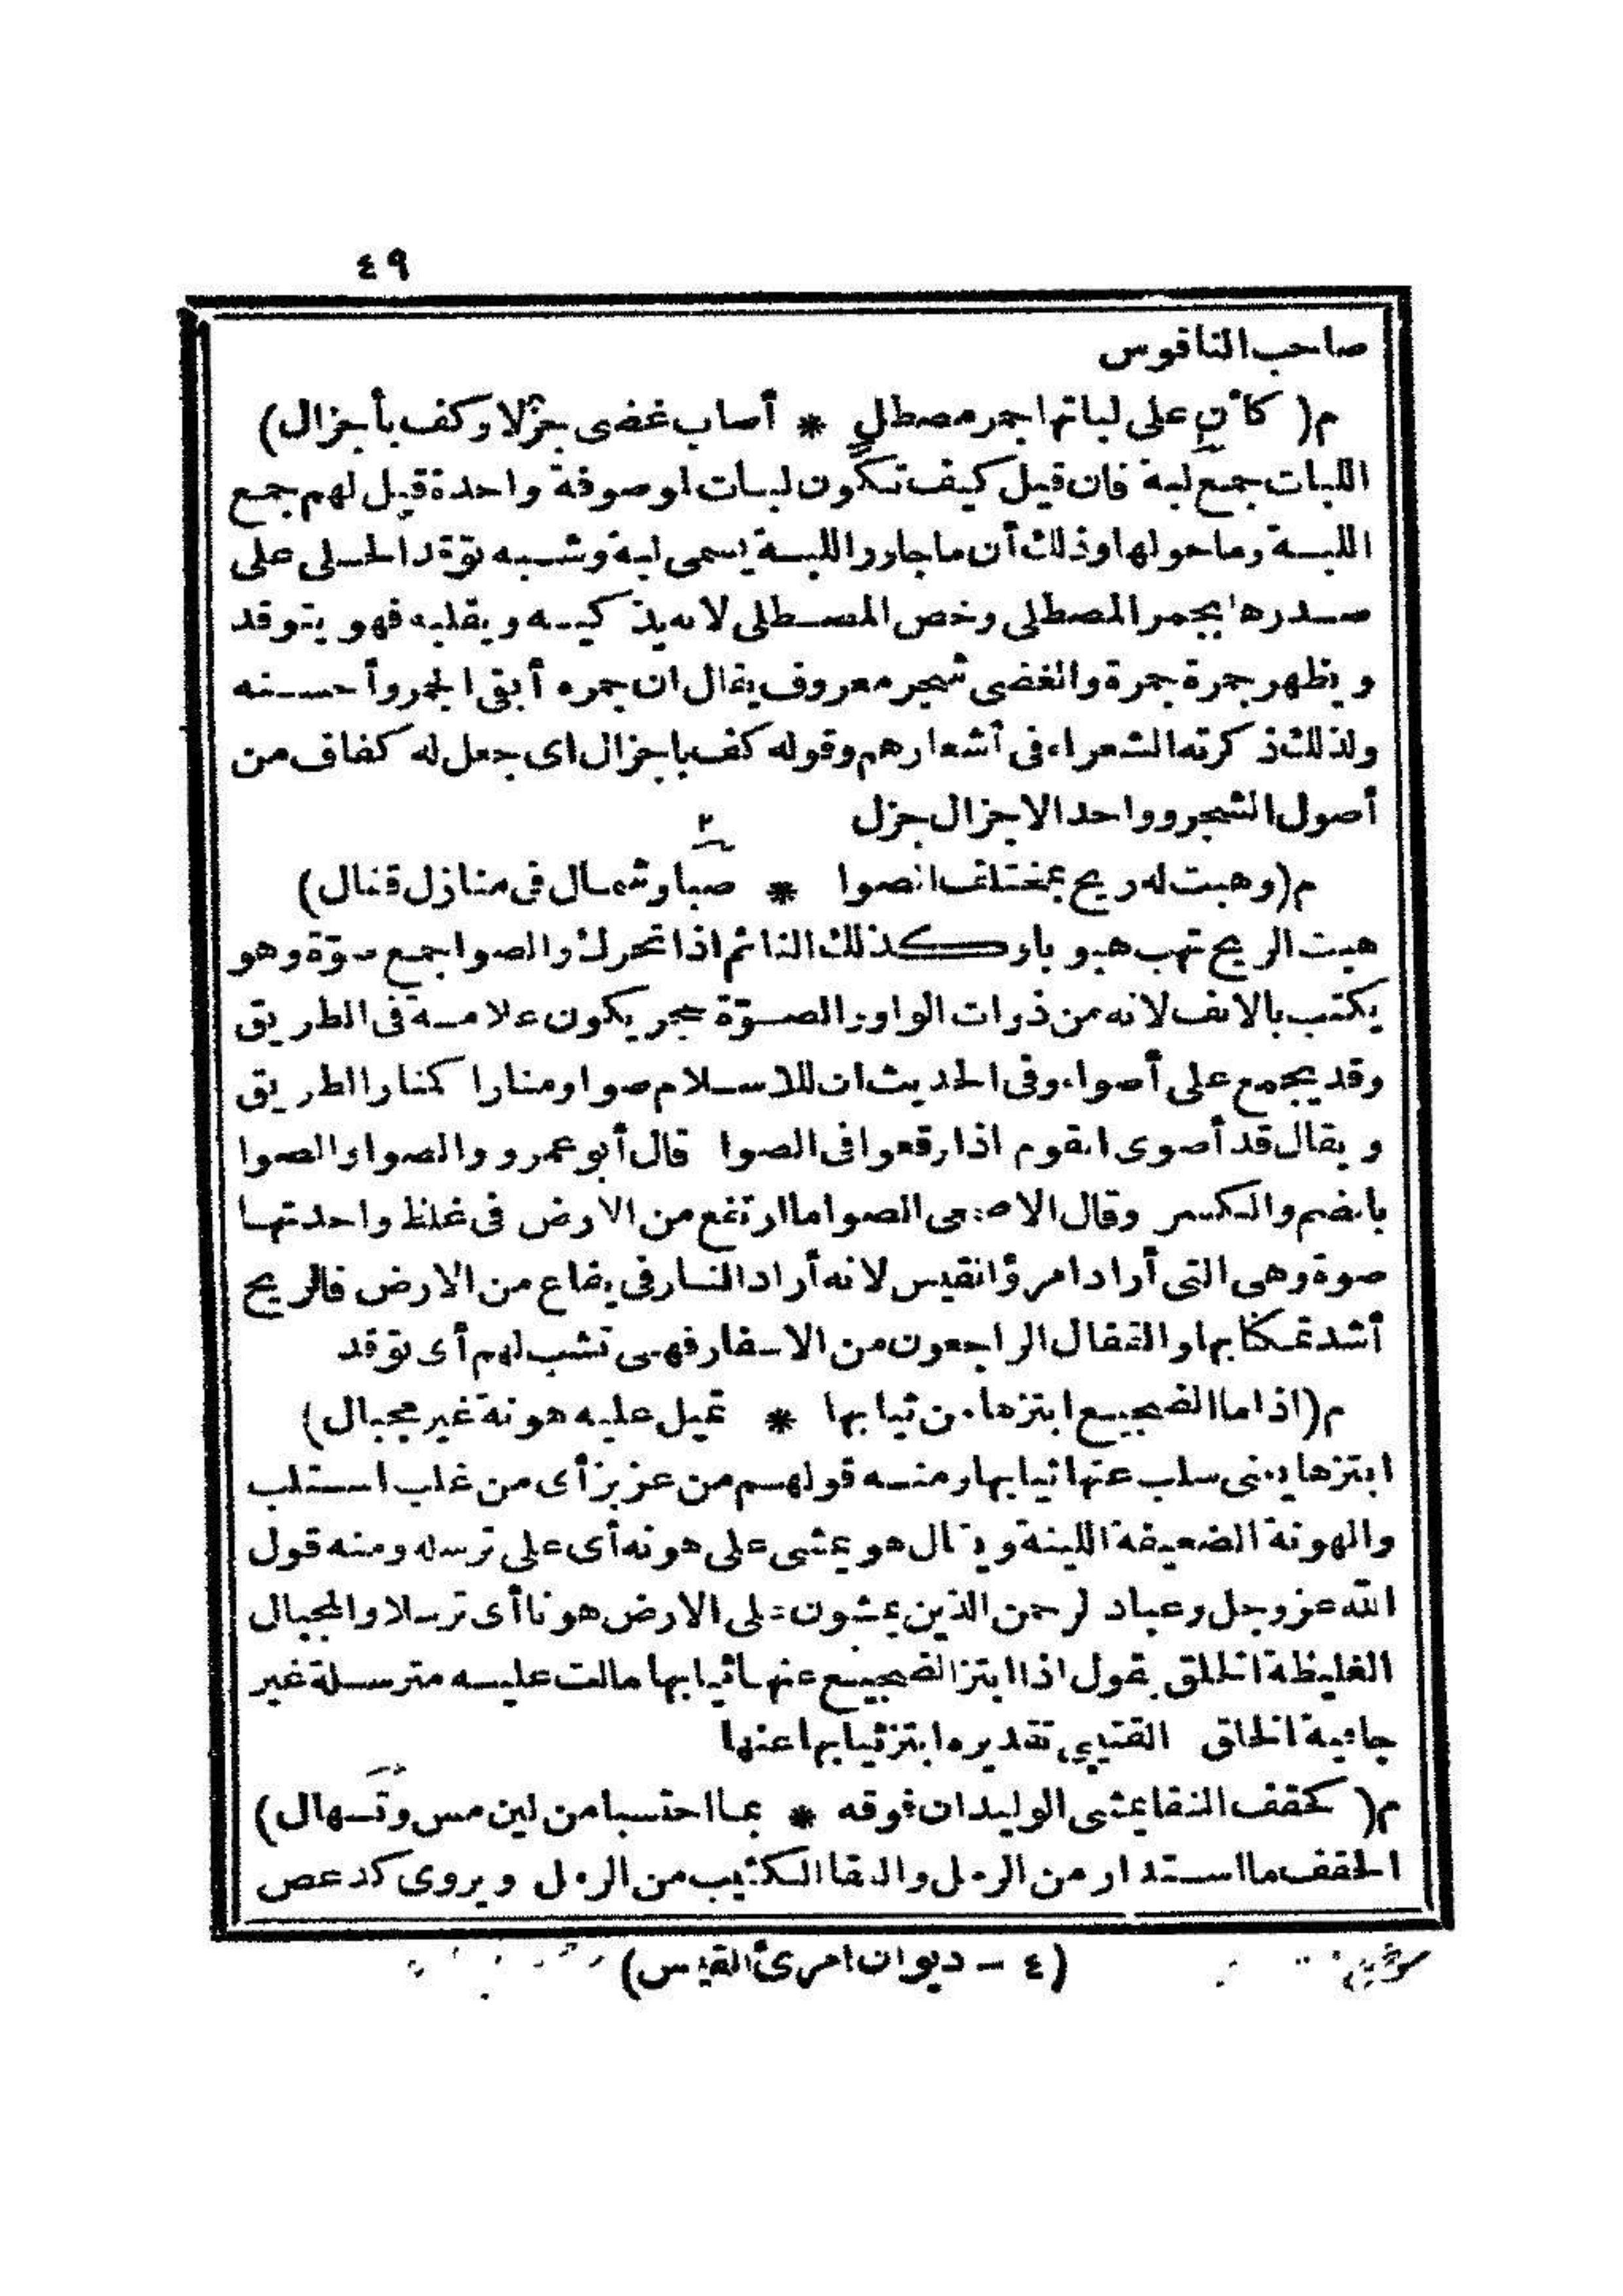 ٤٩
صاحب الناقوس
م( كأن على لباتها جمر مصطل * أصاب غضى جزلا وكف بأجزال)
اللبات جمع لبة فان قيل كيف تكون لبات لموصوفة واحدة قيل لهم جمع
اللبة وما حولها وذلك أن ما جاور اللبة يسمى لبة وشبه توقد الحلى على
صدرها بجمر المصطلى وخص المصطلى لانه يذكيه ويقلبه فهو يتوقد
ويظهر جمرة جمرة والغضى شجر معروف يقال ان جمره أبقى الجمر وأحسنه
ولذلك ذكرته الشعراء فى أشعارهم وقوله كف باجزال اى جعل له كفاف من
أصول الشجر وواحد الاجزال جزل
٢
م(وهبت له ريح بمختلف الصوا * صبا وشمال فى منازل قفال)
هبت الريح تهب هبوبا وكذلك النائم اذا تحرك والصوا جمع صوّة وهو
يكتب بالالف لانه من ذوات الواو والصوّة حجر يكون علامة فى الطريق
وقد يجمع على أصواء وفى الحديث ان للاسلام صوا ومنارا كمنار الطريق
ويقال قد أصوى القوم اذا وقعوا فى الصوا قال أبو عمرو والصوا والصوا
بالضم والكسر وقال الاصمعى الصوا ما ارتفع من الارض فى غلظ واحدتها
صوة وهى التى أراد امرؤ القيس لانه أراد النار فى يفاع من الارض فالريح
أشد تمكنا بها والقفال الراجعون من الاسفار فهى تشب لهم أى توقد
م(اذا ما الضجيع ابتزها من ثيابها * تميل عليه هونة غير مجبال)
ابتزها يعنى سلب عنها ثيابها ومنه قولهم من عز بز أى من غلب استلب
والهونة الضعيفة اللينة ويقال هو يمشى على هونه أى على ترسله ومنه قول
الله عز وجل وعباد الرحمن الذين يمشون على الارض هونا أى ترسلا والمجبال
الغليظة الخلق يقول اذا ابتز الضجيع عنها ثيابها مالت عليه مترسلة غير
جافية الخلق القتيبى تقديره ابتز ثيابها عنها
م( كحقف النقا يمشى الوليدان فوقه * بما احتسبا من لين مس وتسهال)
الحقف ما استدار من الرمل والنقا الكثيب من الرمل ويروى كدعص
(٤ – ديوان امرئ القيس)